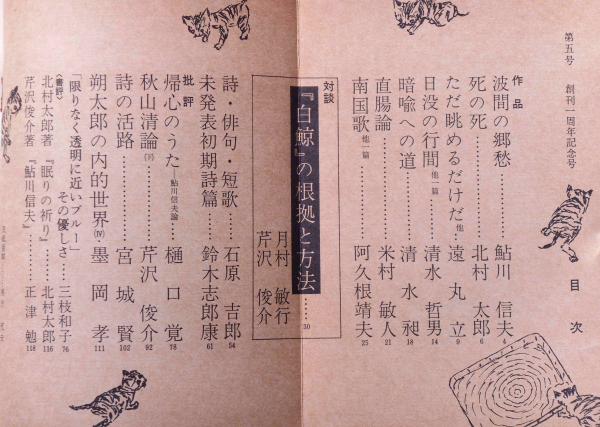 第五号 創刊一周年記念号
目次
作品
波間の郷愁……鮎川信夫 4
死の死……北村太郎 6
ただ眺めるだけだ 他……遠丸立 9
日没の行間 他一篇……清水哲男 14
暗喩への道……清水昶 18
直腸論……米村敏人 21
南国歌 他一篇……阿久根靖夫 25
対談
『白鯨』の根拠と方法…… 30
月村敏行
芹沢俊介
詩・俳句・短歌……石原吉郎 54
未発表初期詩篇……鈴木志郎康 61
批評
帰心のうた―鮎川信夫論……樋口覚 78
秋山清論(下)……芹沢俊介 92
詩の活路……宮城賢 102
朔太郎の内的世界(Ⅳ)……墨岡孝 111
「限りなく透明に近いブルー」
その優しさ……三枝和子 76
〈書評〉
北村太郎著『眠りの祈り』……北村太郎 116
芹沢俊介著『鮎川信夫』……正津勉 118